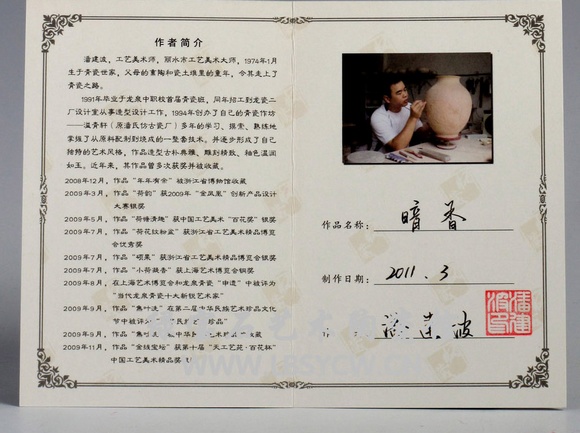 作者简介
潘建波，工艺美术师，丽水市工艺美术大师，1974年1月
生于青瓷世家，父母的熏陶和瓷土堆里的童年，令其走上了
青瓷之路。
1991年毕业于龙泉中职校首届青瓷班，同年招工到龙瓷二
厂设计室从事造型设计工作，1994年创办了自己的青瓷作坊
——温青轩（原潘氏仿古瓷厂）多年的学习、探索、熟练地
掌握了从原料配制到烧成的一整套技术，并逐步形成了自己
独特的艺术风格，作品造型古朴典雅、雕刻精致、釉色温润
如玉。近年来，其作品曾多次获奖并被收藏。
2008年12月，作品“年年有余”被浙江省博物馆收藏
2009年3月，作品“荷韵”获2009年“金凤凰”创新产品设计
大赛银奖
2009年5月，作品“荷塘清趣”获中国工艺美术“百花奖”银奖
2009年7月，作品“荷花纹粉盒”获浙江省工艺美术精品博览
会优秀奖
2009年7月，作品“硕果”获浙江省工艺美术精品博览会银奖
2009年7月，作品“小荷凝香”获上海艺术博览会铜奖
2009年8月，在上海艺术博览会和龙泉青瓷“申遗”中被评为
“当代龙泉青瓷十大新锐艺术家”
2009年9月，作品“蕉叶洗”在第二届中华民族艺术珍品文化
节中被评为 珍品”
2009年9月，作品“蕉 中华 藏
2009年11月，作品“金钱宝坛”获第十届“天工艺苑·百花杯”
中国工艺美术精品奖
作品名称：暗香
制作日期：2011.3
潘建波